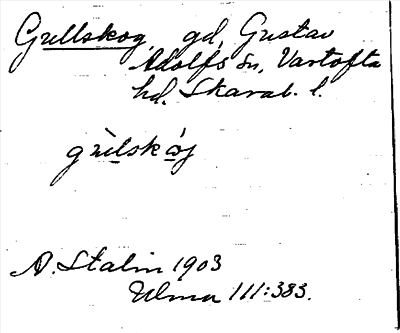 Grellskog, gd, Gustav
Adolfs sn, Vartofta
hd. Skarab. l.
grèlskáj
A. Stalin 1903
Ulma 111:383.